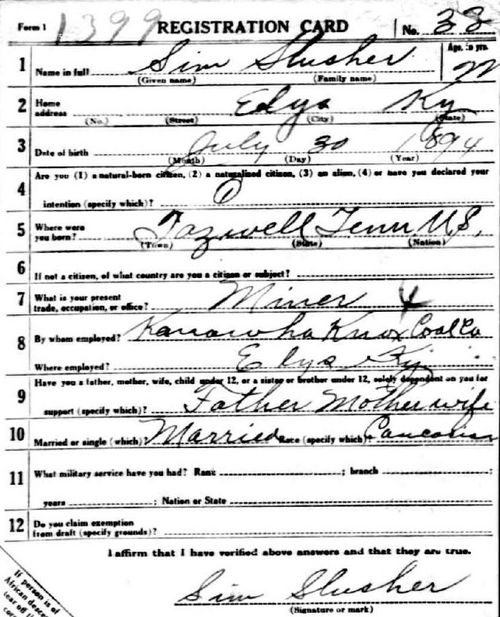 Form 1 1399 REGISTRATION CARD No. 32
1 Sim Slusher Age, in yrs.
Name in full (Given name) (Family name)
2 Home address Elys Ky
(No.) (Street) (City) (State)
3 Date of birth July 30 1894
(Month) (Day) (Year)
4 Are you (1) a natural-born citizen, (2) a naturalized citizen, (3) an alien, (4) or have you declared your
intention (specify which)? 1
5 Where were you born? Tazwell Tenn U.S.
(Town) (State) (Nation)
6 If not a citizen, of what country are you a citizen or subject?
7 What is your present trade, occupation, or office? Miner 4
8 By whom employed? Kanawha Knox Coal Co
Where employed? Elys Ky
9 Have you a father, mother, wife, child under 12, or a sister or brother under 12, solely dependent on you for
support (specify which)? Father Mother wife
10 Married or single (which) Married Race (specify which) Caucasian
11 What military service have you had? Rank ; branch ;
years ; Nation or State
12 Do you claim exemption from draft (specify grounds)?
I affirm that I have verified above answers and that they are true.
Sim Slusher
(Signature or mark)
If person is of
African
tear off